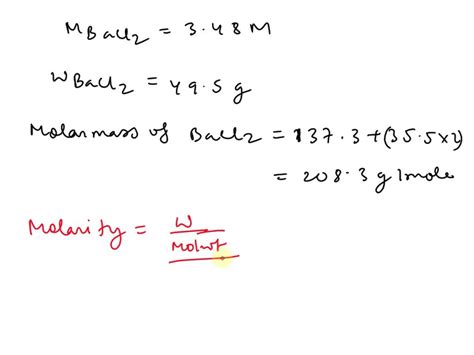 M BaCl2 = 3.48 M
W BaCl2 = 49.5 g
Molar mass of BaCl2 = 137.3 + (35.5 x 2)
= 208.3 g/mole
Molarity = W / Mol wt